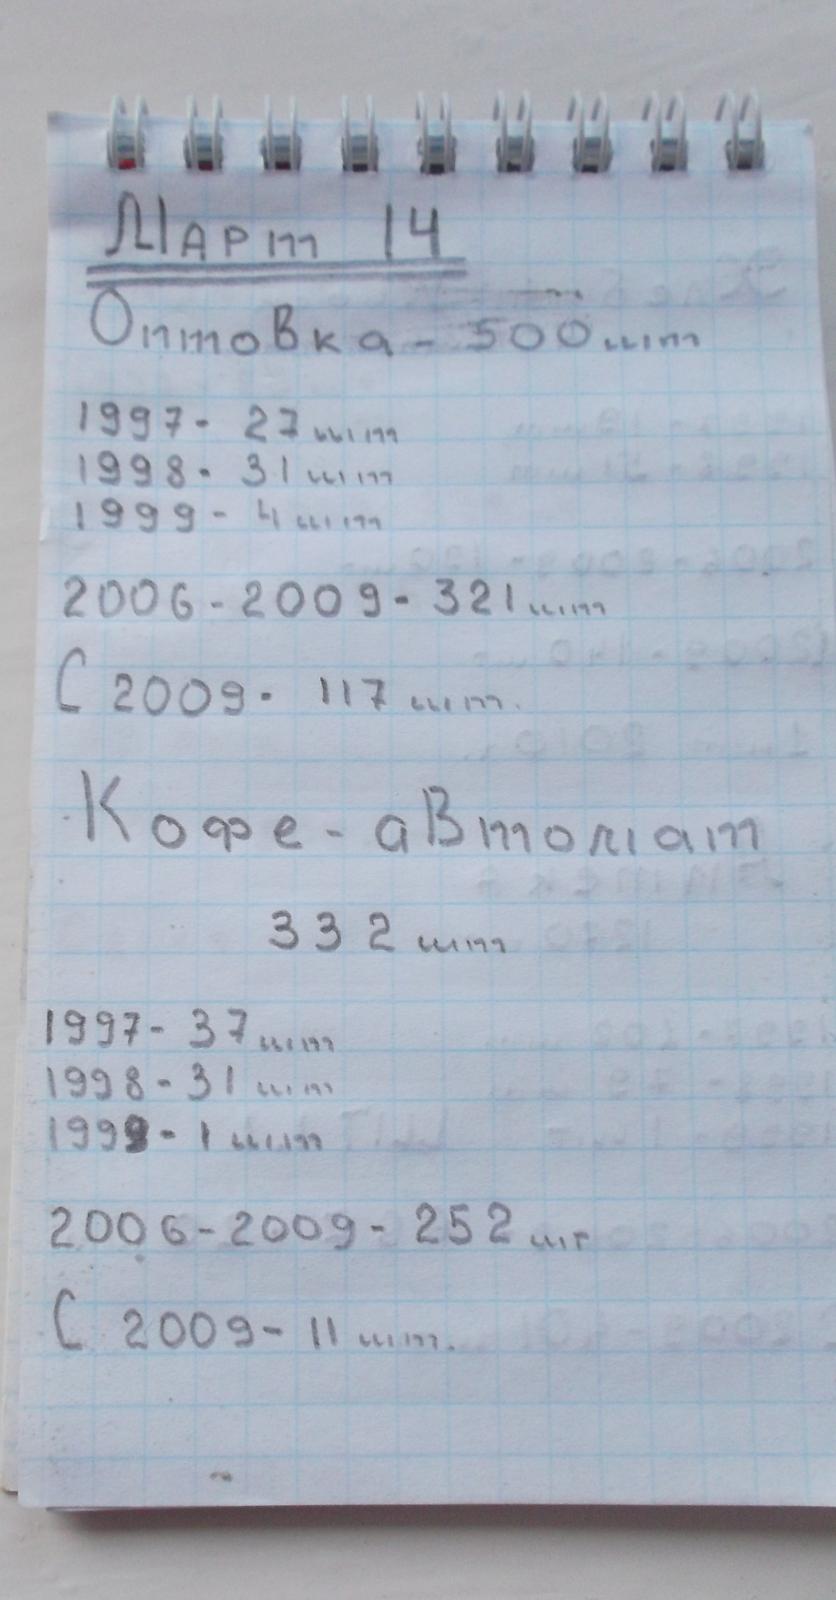 Март 14
Оптовка - 500 шт
1997 - 27 шт
1998 - 31 шт
1999 - 4 шт
2006 - 2009 - 321 шт
С 2009 - 117 шт.
Кофе - автомат
332 шт
1997 - 37 шт
1998 - 31 шт
1999 - 1 шт
2006 - 2009 - 252 шт
С 2009 - 11 шт.